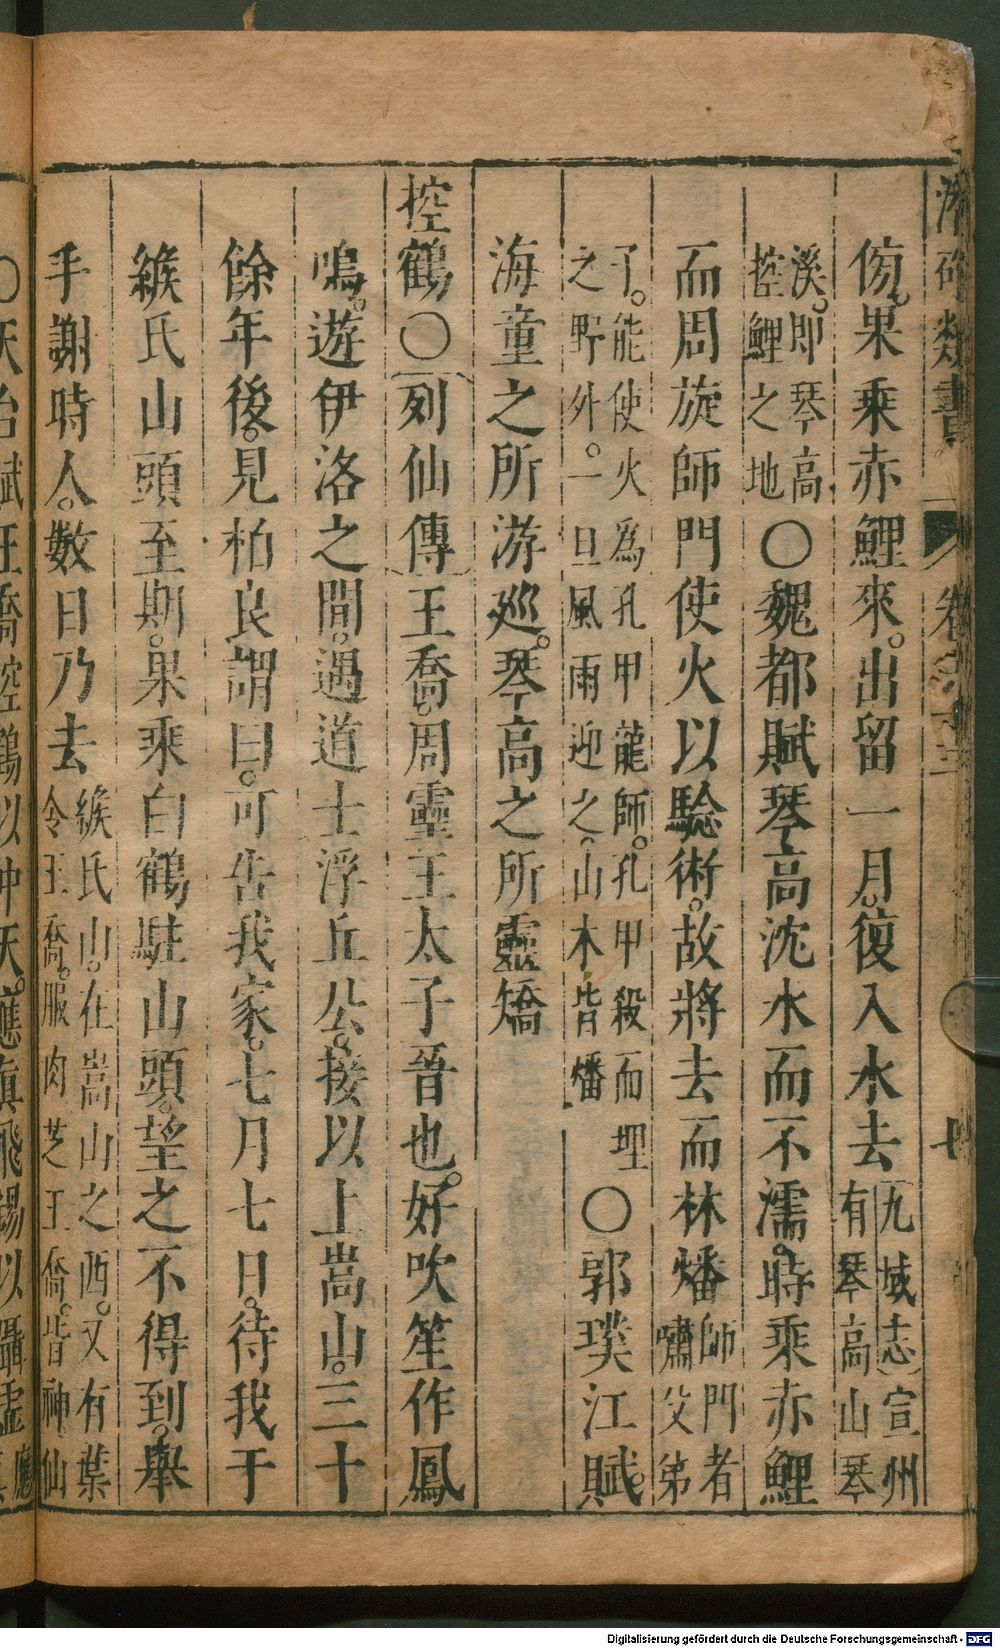 傍。果乘赤鯉來。出留一月。復入水去〔九域志〕宣州有琴高山琴
溪。即琴高控鯉之地〇魏都賦琴高沈水而不濡。時乘赤鯉
而周旋師門使火以驗術。故將去而林燔師門者嘯父弟
子。能使火為孔甲龍師。孔甲殺而埋之野外。一旦風雨迎之。山木皆燔〇郭璞江賦。
海童之所游巡。琴高之所靈矯
控鶴〇〔列仙傳〕王喬。周靈王太子晉也。好吹笙作鳳
鳴。遊伊洛之間。遇道士浮丘公。接以上嵩山。三十
餘年後。見柏良謂曰。可告我家。七月七日。待我于
緱氏山頭至期。果乘白鶴駐山頭。望之不得到。舉
手謝時人。數日乃去緱氏山。在嵩山之西。又有葉令王喬。服肉芝王喬。皆神仙
〇天台賦王喬控鶴以冲天。應真飛錫以躡虛
卷
七
Digitalisierung gefördert durch die Deutsche Forschungsgemeinschaft - DFG